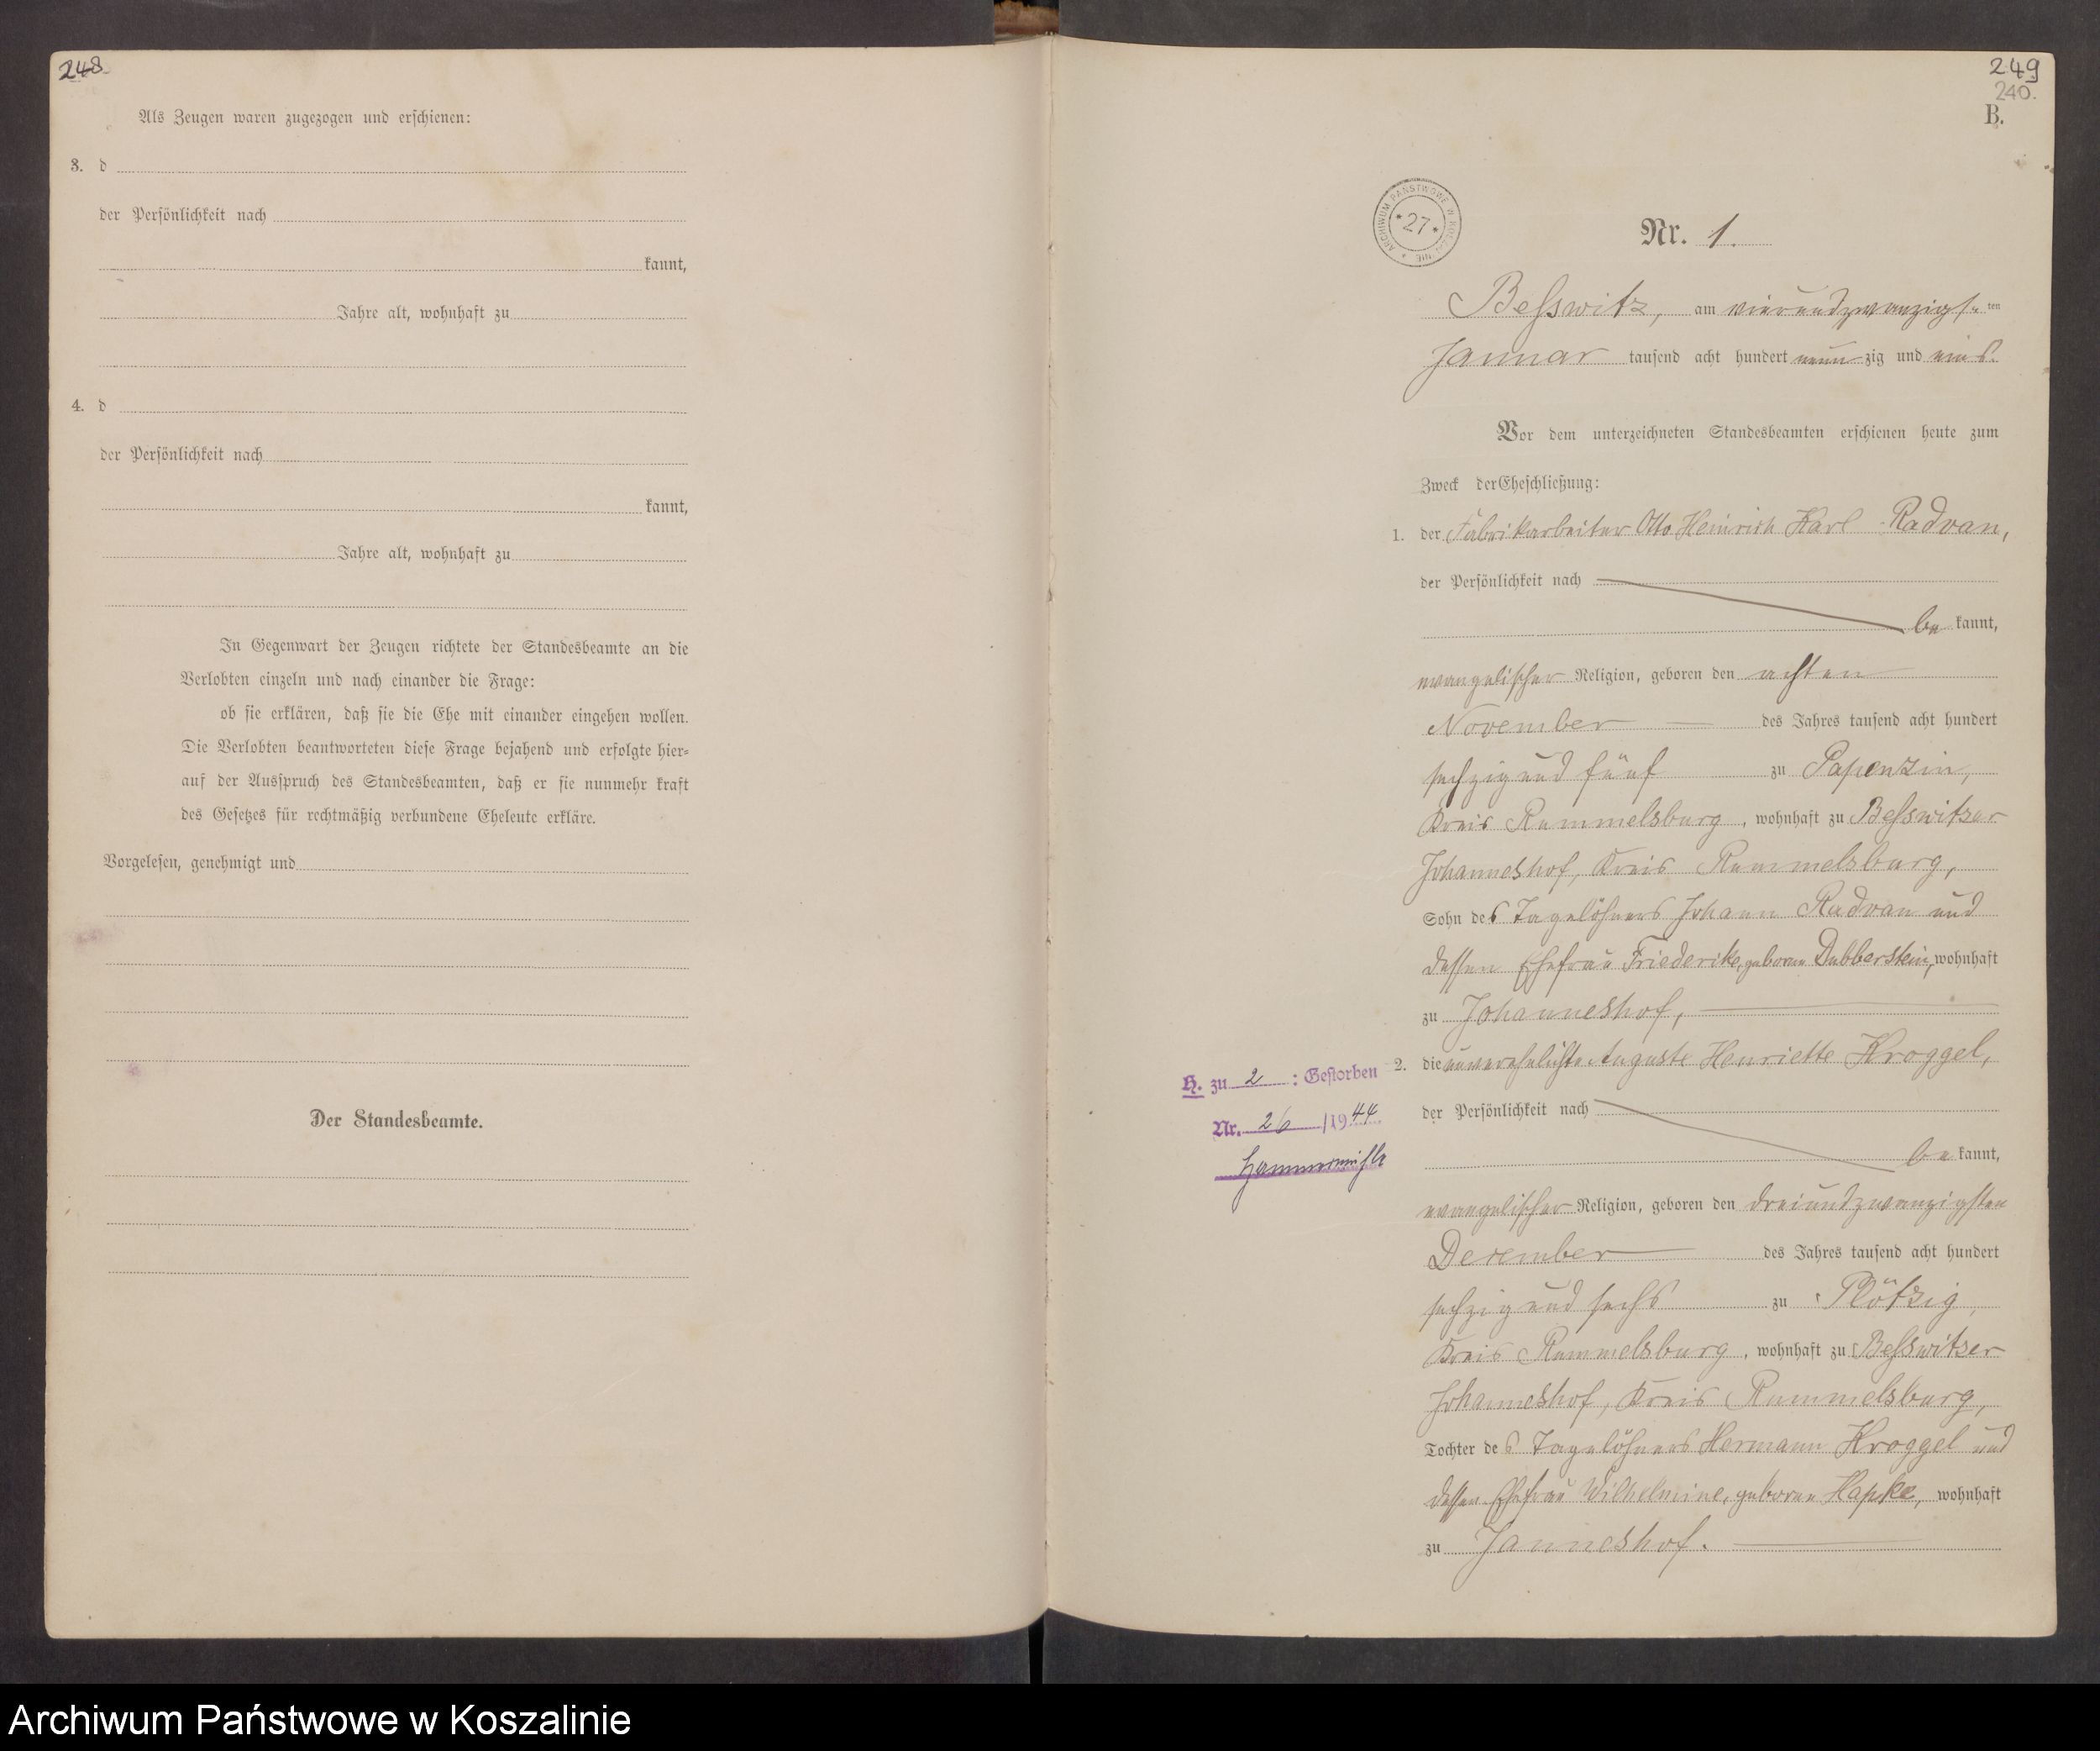 248
Als Zeugen waren zugezogen und erschienen:
3. d
der Persönlichkeit nach
kannt,
Jahre alt, wohnhaft zu
4. d
der Persönlichkeit nach
kannt,
Jahre alt, wohnhaft zu
In Gegenwart der Zeugen richtete der Standesbeamte an die
Verlobten einzeln und nach einander die Frage:
ob sie erklären, daß sie die Ehe mit einander eingehen wollen.
Die Verlobten beantworteten diese Frage bejahend und erfolgte hier-
auf der Ausspruch des Standesbeamten, daß er sie nunmehr kraft
des Gesetzes für rechtmäßig verbundene Eheleute erkläre.
Vorgelesen, genehmigt und
Der Standesbeamte.
249
240.
B.
ARCHIWUM PAŃSTWOWE W KOSZALINIE
*27*
Nr. 1.
Beßwitz, am vierundzwanzigsten
Januar tausend acht hundert neunzig und eins.
Vor dem unterzeichneten Standesbeamten erschienen heute zum
Zweck der Eheschließung:
1. der Fabrikarbeiter Otto Heinrich Karl Radvan,
der Persönlichkeit nach
bekannt,
evangelischer Religion, geboren den achten
November des Jahres tausend acht hundert
sechzig und fünf zu Papenzin,
Kreis Rummelsburg, wohnhaft zu Beßwitzer
Johanneshof, Kreis Rummelsburg,
Sohn des Tagelöhners Johann Radvan und
dessen Ehefrau Friederike, geborene Dubberstein, wohnhaft
zu Johanneshof,
2. die unverehelichte Auguste Henriette Kroggel,
der Persönlichkeit nach
bekannt,
evangelischer Religion, geboren den dreiundzwanzigsten
Dezember des Jahres tausend acht hundert
sechzig und sechs zu Plötzig,
Kreis Rummelsburg, wohnhaft zu Beßwitzer
Johanneshof, Kreis Rummelsburg,
Tochter des Tagelöhners Hermann Kroggel und
dessen Ehefrau Wilhelmine, geborene Hapke, wohnhaft
zu Janneshof.
H. zu 2 : Gestorben
Nr. 26 /1944
Archiwum Państwowe w Koszalinie